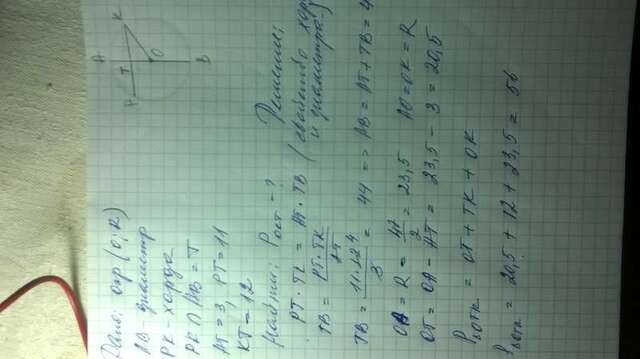 Дано: окр (O; R)
AB - диаметр
PK - хорда
PK ∩ AB = T
AT = 3, PT = 11
KT = 12
Найти: P -?
Решение:
PT · TK = AT · TB (свойство хорд
и диаметра)
TB = PT·TK / AT
TB = 11·12 / 3 = 44 => AB = AT + TB = 4
OB = R = 47 / 2 = 23,5 AO = OK = R
OT = OA - AT = 23,5 - 3 = 20,5
P = OT + TK + OK
P = 20,5 + 12 + 23,5 = 56
A
K
T
O
B
P